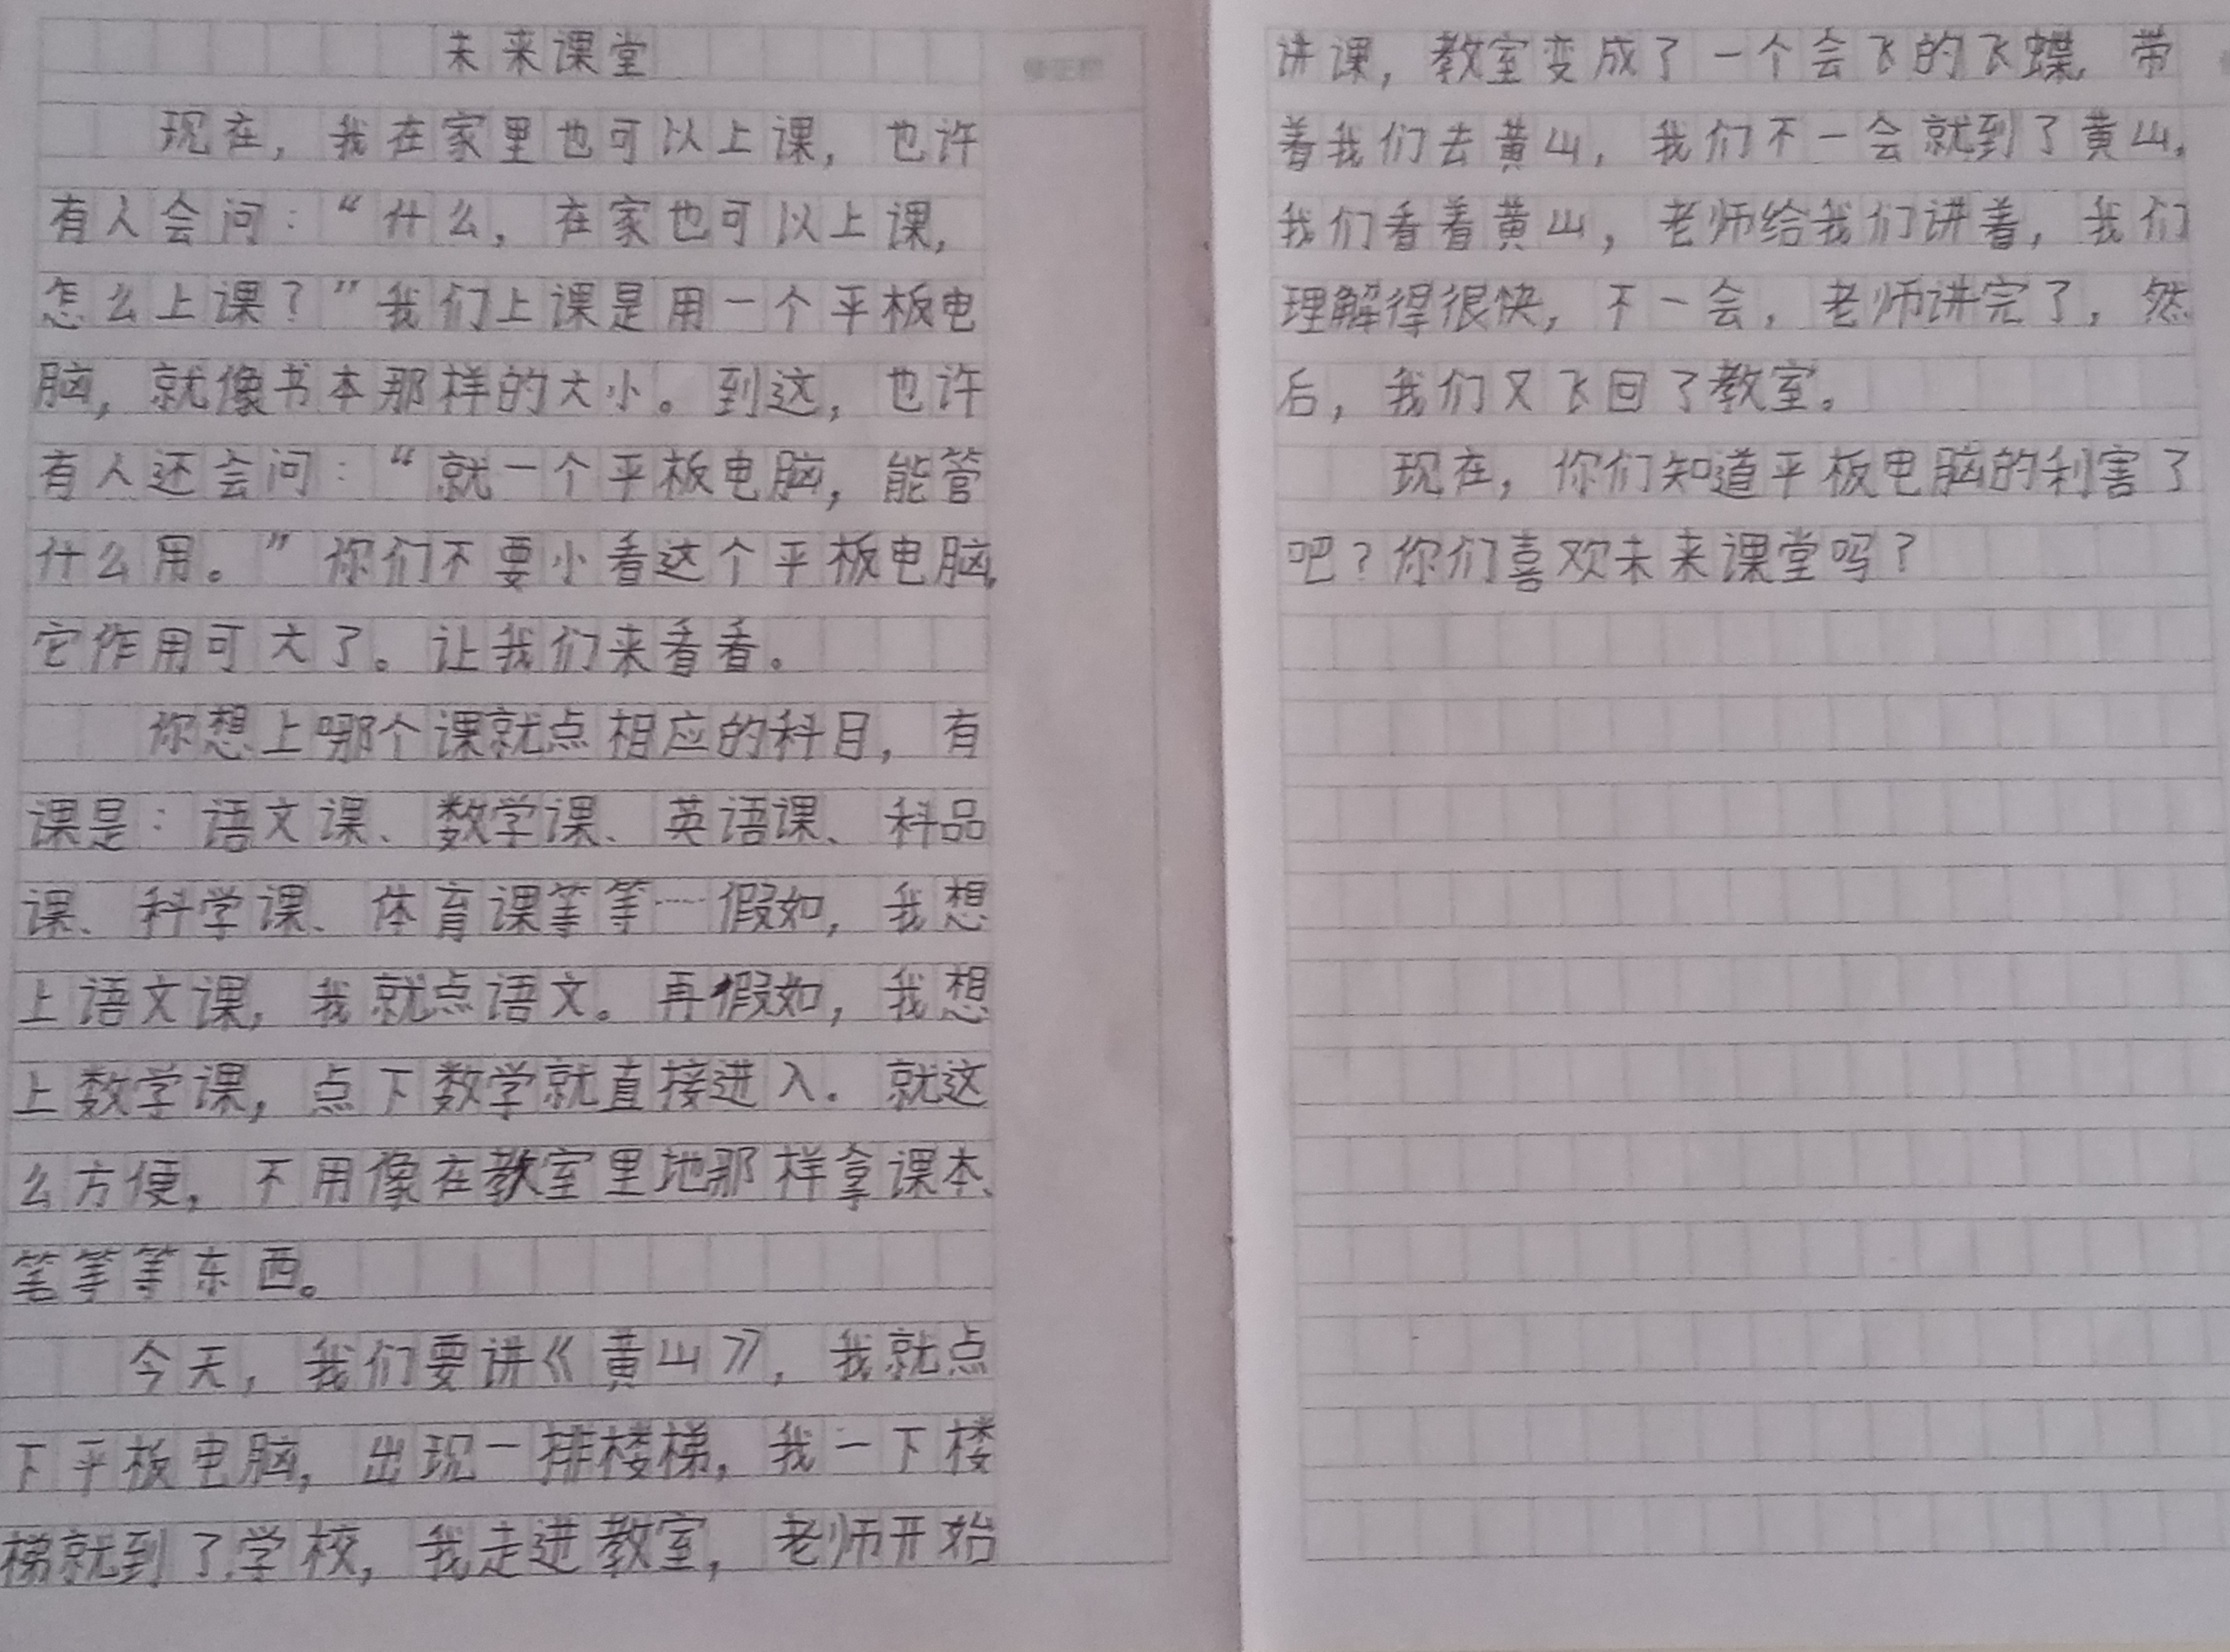 未来课堂
现在，我在家里也可以上课，也许
有人会问：“什么，在家也可以上课，
怎么上课？”我们上课是用一个平板电
脑，就像书本那样的大小。到这，也许
有人还会问：“就一个平板电脑，能管
什么用。”你们不要小看这个平板电脑，
它作用可大了。让我们来看看。
你想上哪个课就点相应的科目，有
课是：语文课、数学课、英语课、科品
课、科学课、体育课等等……假如，我想
上语文课，我就点语文。再假如，我想
上数学课，点下数学就直接进入．就这
么方便，不用像在教室里地那样拿课本、
笔等等东西。
今天，我们要讲《黄山》，我就点
下平板电脑，出现一排楼梯，我一下楼
梯就到了学校，我走进教室，老师开始
讲课，教室变成了一个会飞的飞蝶，带
着我们去黄山，我们不一会就到了黄山。
我们看着黄山，老师给我们讲着，我们
理解得很快，不一会，老师讲完了，然
后，我们又飞回了教室。
现在，你们知道平板电脑的利害了
吧？你们喜欢未来课堂吗？